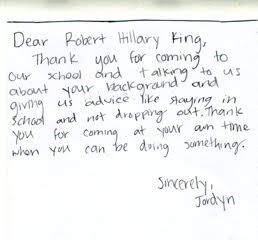 Dear Robert Hillary King,
Thank you for coming to
our school and talking to us
about your background and
giving us advice like staying in
school and not dropping out. Thank
you for coming at your own time
when you can be doing something.
Sincerely,
Jordyn